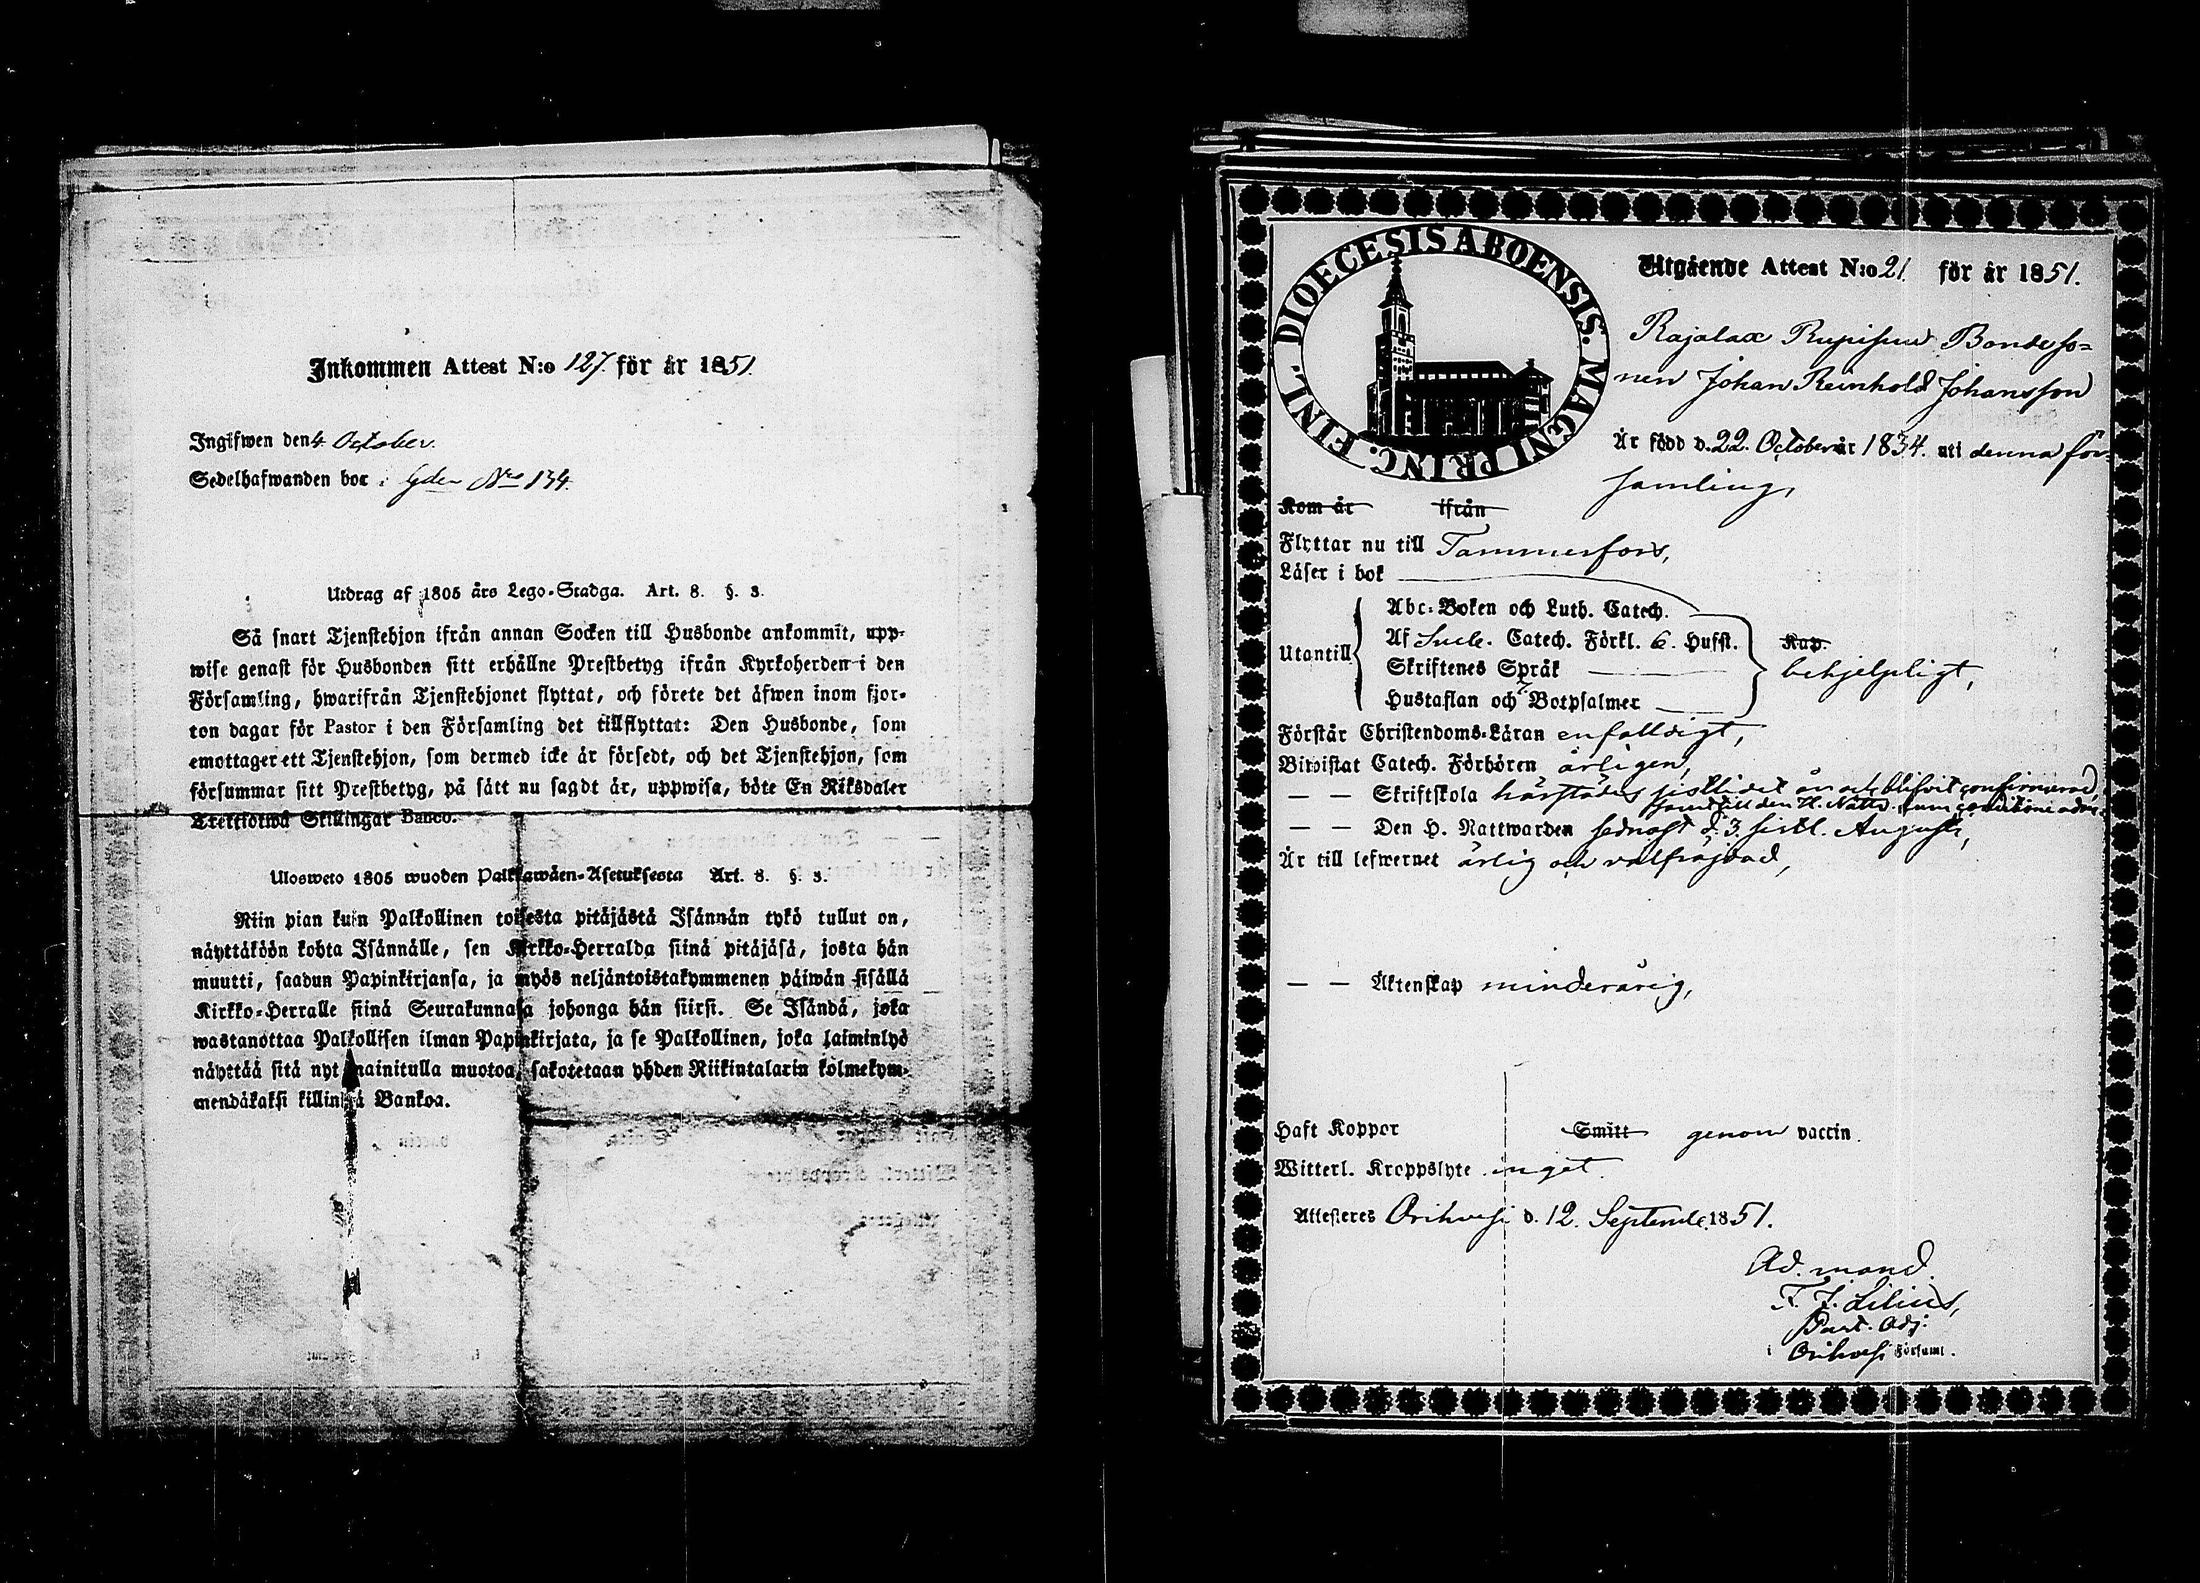 Inkommen Attest N:o 127. för år 1851.
Ingifwen den 4 October.
Sedelhafwanden bor i Gden Nro 134.
Utdrag af 1805 års Lego-Stadga. Art. 8. §. 3.
Så snart Tjenstehjon ifrån annan Socken till Husbonde ankommit, upp-
wise genast för Husbonden sitt erhållne Prestbetyg ifrån Kyrkoherden i den
Församling, hwarifrån Tjenstehjonet flyttat, och förete det åfwen inom fjor-
ton dagar för Pastor i den Församling det tillflyttat: Den Husbonde, som
emottager ett Tjenstehjon, som dermed icke är försedt, och det Tjenstehjon, som
försummar sitt Prestbetyg, på sätt nu sagdt är, uppwisa, böte En Riksdaler
Trettiotwå Skillingar Banco.
Ulosweto 1805 wuoden Palkkawäen-Asetuksesta Art. 8. §. 3.
Niin pian kuin Palkollinen toisesta pitäjästä Isännän tykö tullut on,
näyttäköön kohta Isännälle, sen Kirkko-Herralda siinä pitäjäsä, josta hän
muutti, saadun Papinkirjansa, ja myös neljäntoistakymmenen päiwän sisällä
Kirkko-Herralle siinä Seurakunnasa johonga hän siirsi. Se Isändä, joka
wastanottaa Palkollisen ilman Papinkirjata, ja se Palkollinen, joka laiminlyö
näyttää sitä nyt mainitulla muotoa, sakotetaan yhden Riikintalarin kolmekym-
mendäkaksi killingiä Bankoa.
DIOECESIS ABOENSIS. MAGNI PRINC. FINL.
Utgående Attest N:o 21. för år 1851.
Rajalax Rupisens Bondeso=
nen Johan Reinhold Johansson
Är född d. 22. October år 1834. uti denna för-
samling,
Kom år ifrån
Flyttar nu till Tammerfors,
Läser i bok
Abc-Boken och Luth. Catech.
Utantill Af Sveb. Catech. Förkl. 6. Hufst. Kap.
Skriftenes Språk behjelpligt,
Hustaflan och 7 Botpsalmer
Förstår Christendoms-Läran enfalldigt,
Biwistat Catech. Förhören årligen,
— — Skriftskola härstädes sistlidet år och blifvit confirmerad
samt till den H. Nattv.
— — Den H. Nattwarden sednast d. 3. sistl. Augusti,
Är till lefwernet ärlig och välfräjdad,
— — Äktenskap minderårig,
Haft Koppor Smitt genom vaccin.
Witterl. Kroppslyte inget.
Attesteres Orihvesi d. 12. Septemb. 1851.
Ad. mand.
F. J. Lilius,
Past. Adj.
i Orihvesi Församl.